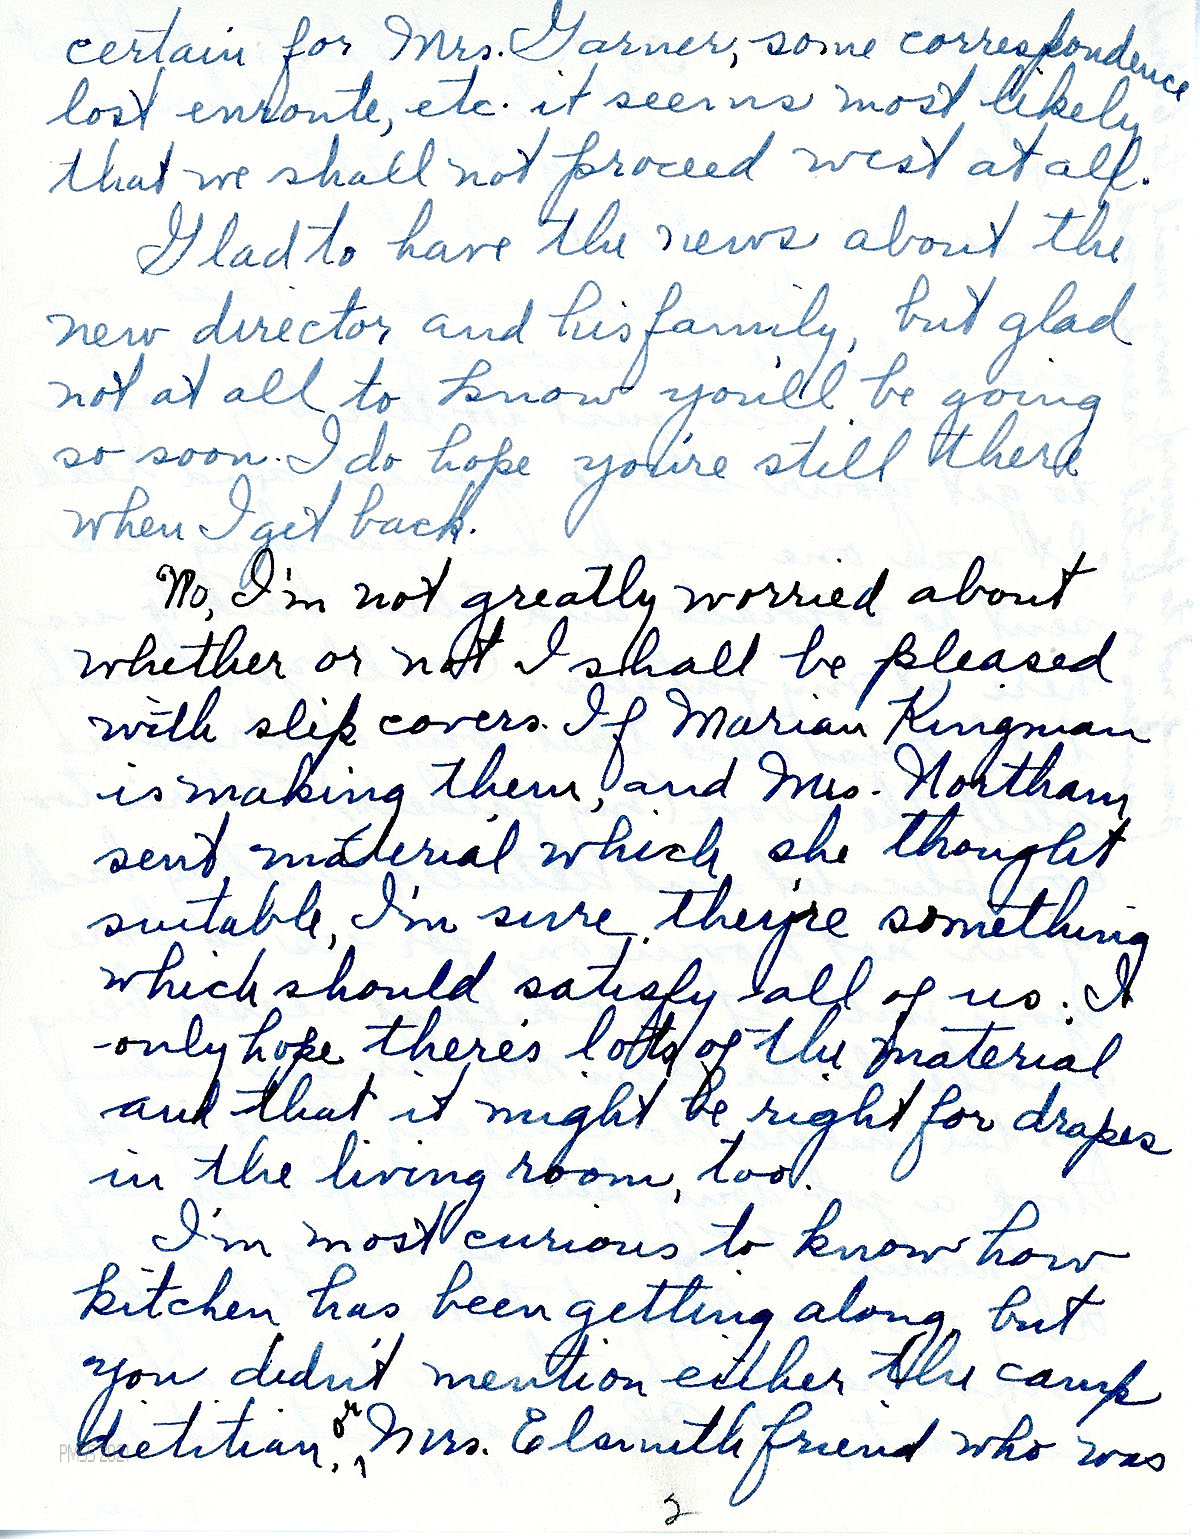 certain for Mrs. Garner, some correspondence
lost enroute, etc. it seems most likely
that we shall not proceed west at all.
Glad to have the news about the
new director and his family, but glad
not at all to know you'll be going
so soon. I do hope you're still there
when I get back.
No, I'm not greatly worried about
whether or not I shall be pleased
with slip covers. If Marian Kingman
is making them, and Mrs. Northam
sent material which she thought
suitable, I'm sure they're something
which should satisfy all of us. I
only hope there's lots of the material
and that it might be right for drapes
in the living room, too.
I'm most curious to know how
kitchen has been getting along, but
you didn't mention either the camp
dietitian, or Mrs. Elsmith friend who was
2